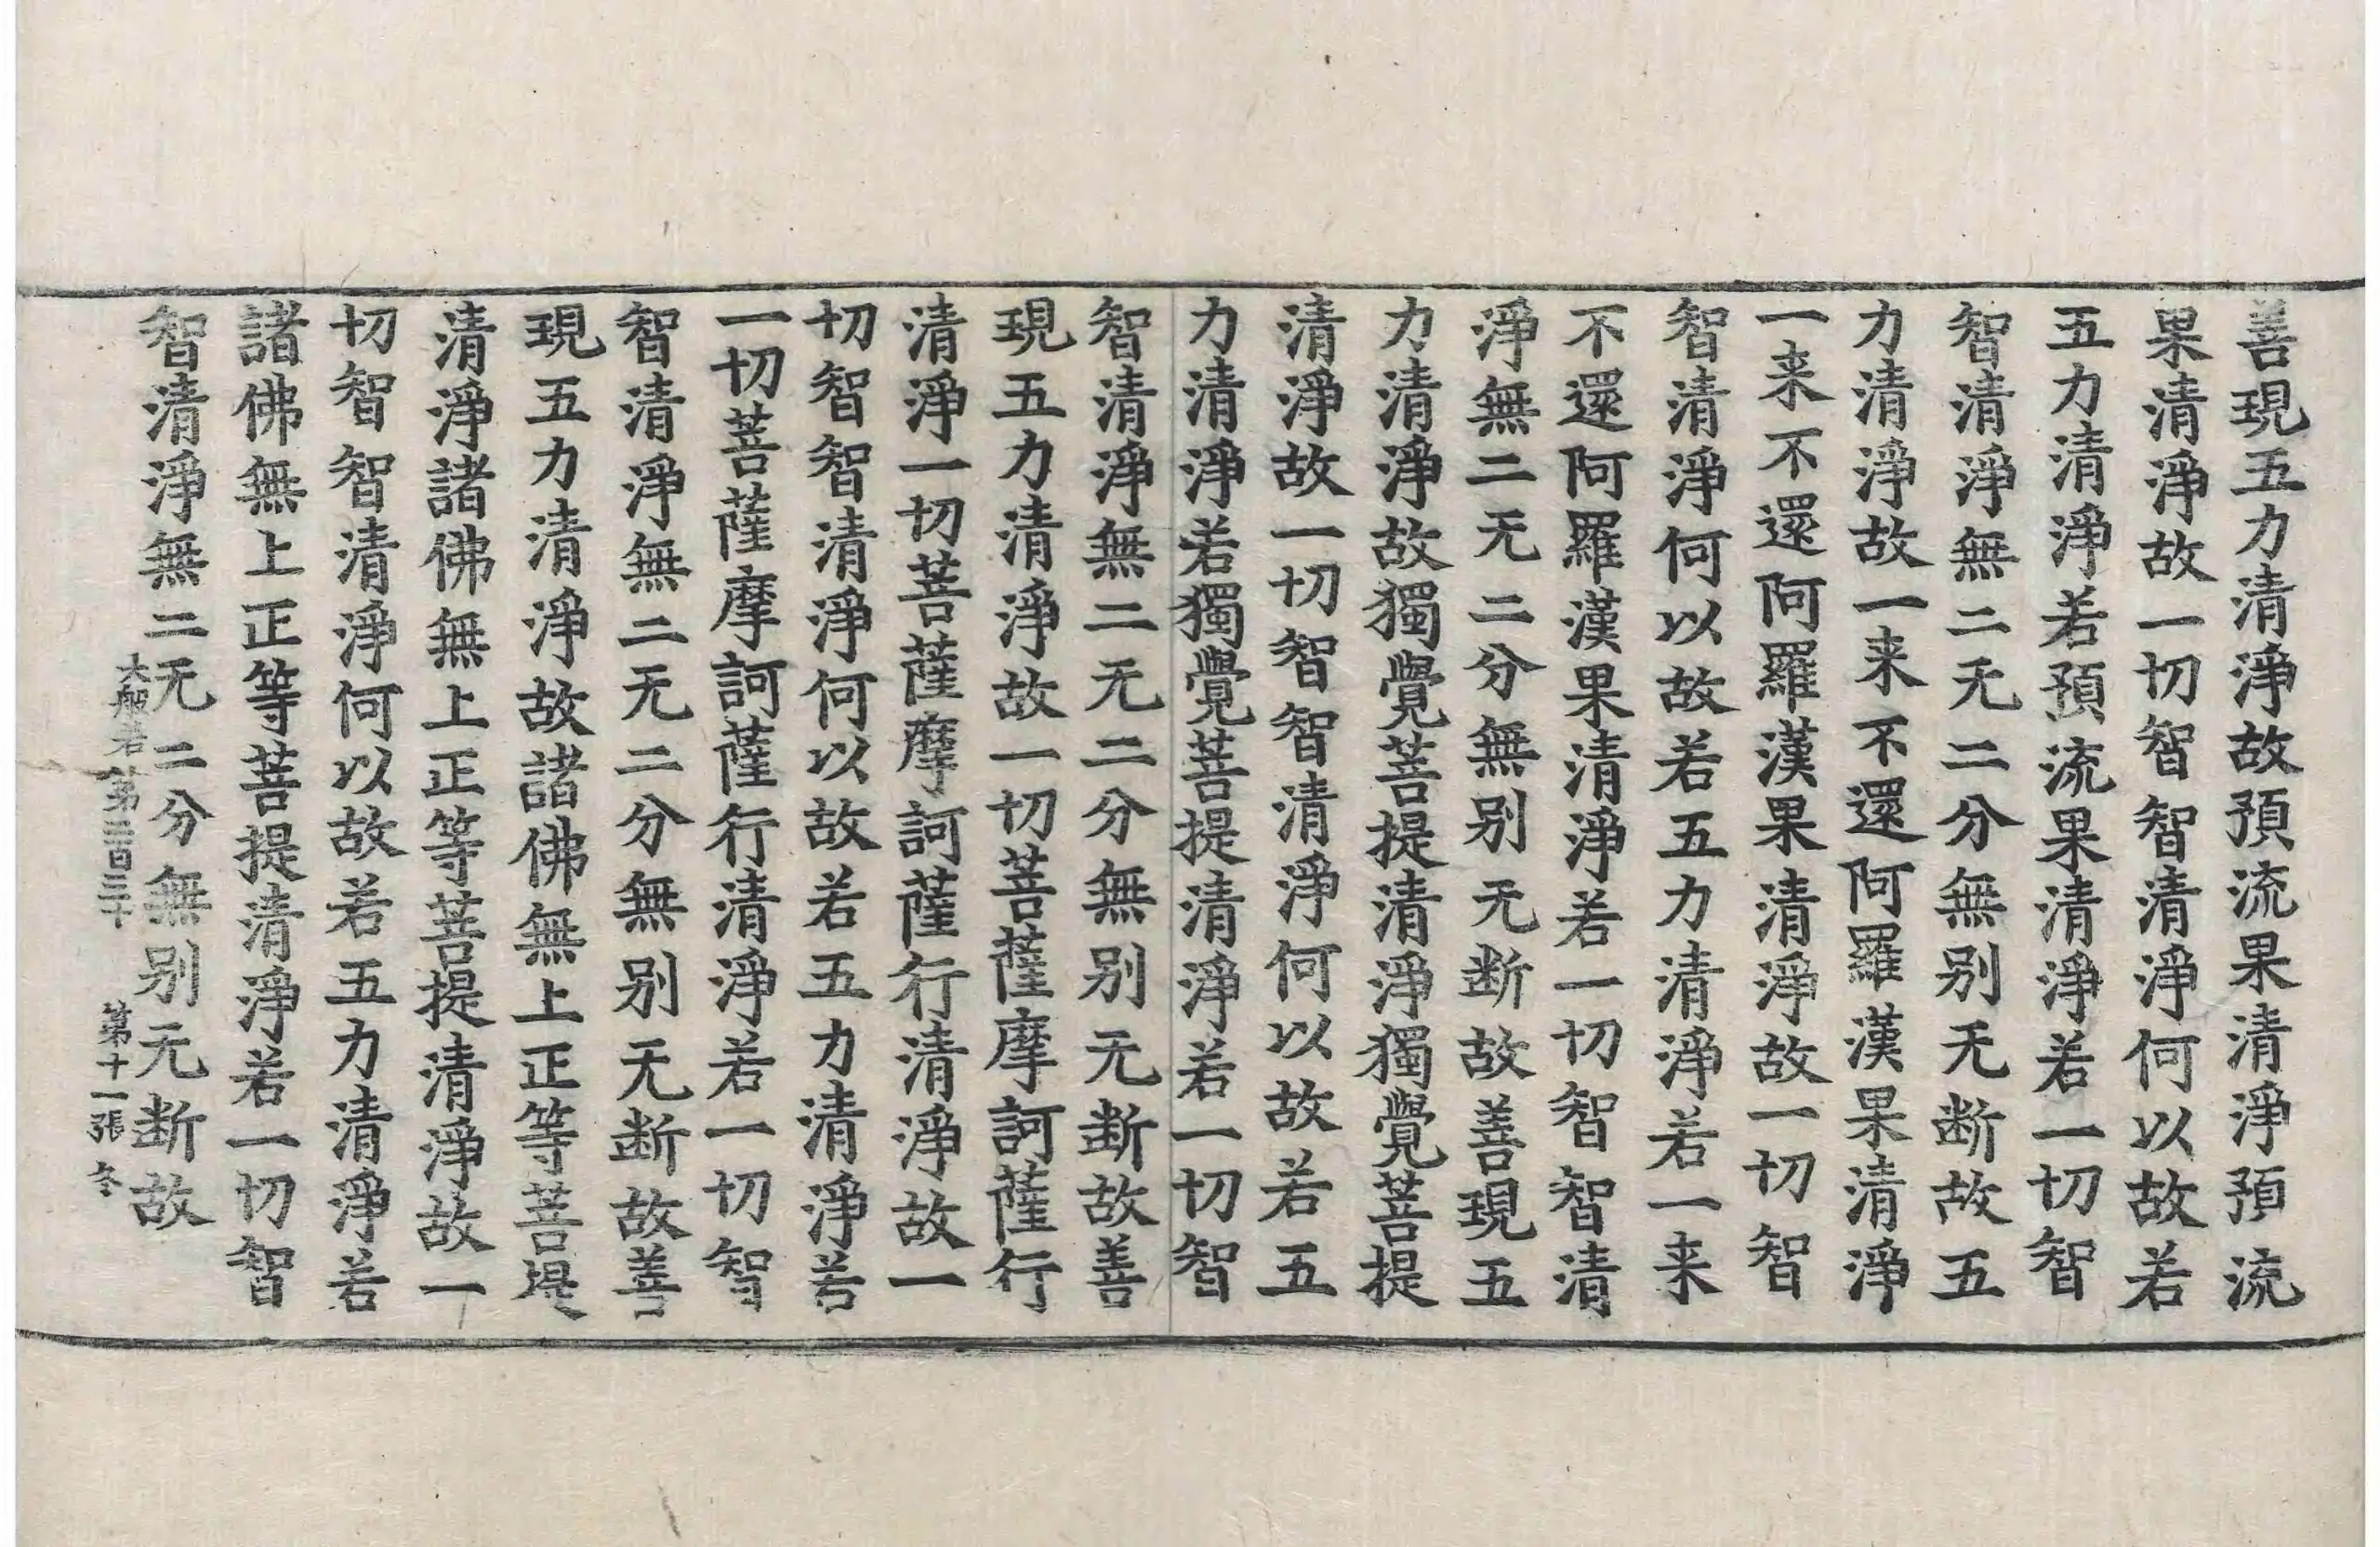 善現五力清淨故預流果清淨預流
果清淨故一切智智清淨何以故若
五力清淨若預流果清淨若一切智
智清淨無二无二分無别无断故五
力清淨故一来不還阿羅漢果清淨
一来不還阿羅漢果清淨故一切智
智清淨何以故若五力清淨若一来
不還阿羅漢果清淨若一切智智清
淨無二无二分無别无断故善現五
力清淨故獨覺菩提清淨獨覺菩提
清淨故一切智智清淨何以故若五
力清淨若獨覺菩提清淨若一切智
智清淨無二无二分無别无断故善
現五力清淨故一切菩薩摩訶薩行
清淨一切菩薩摩訶薩行清淨故一
切智智清淨何以故若五力清淨若
一切菩薩摩訶薩行清淨若一切智
智清淨無二无二分無别无断故善
現五力清淨故諸佛無上正等菩提
清淨諸佛無上正等菩提清淨故一
切智智清淨何以故若五力清淨若
諸佛無上正等菩提清淨若一切智
智清淨無二无二分無别无断故
大般若第二百三十 第十一張 冬